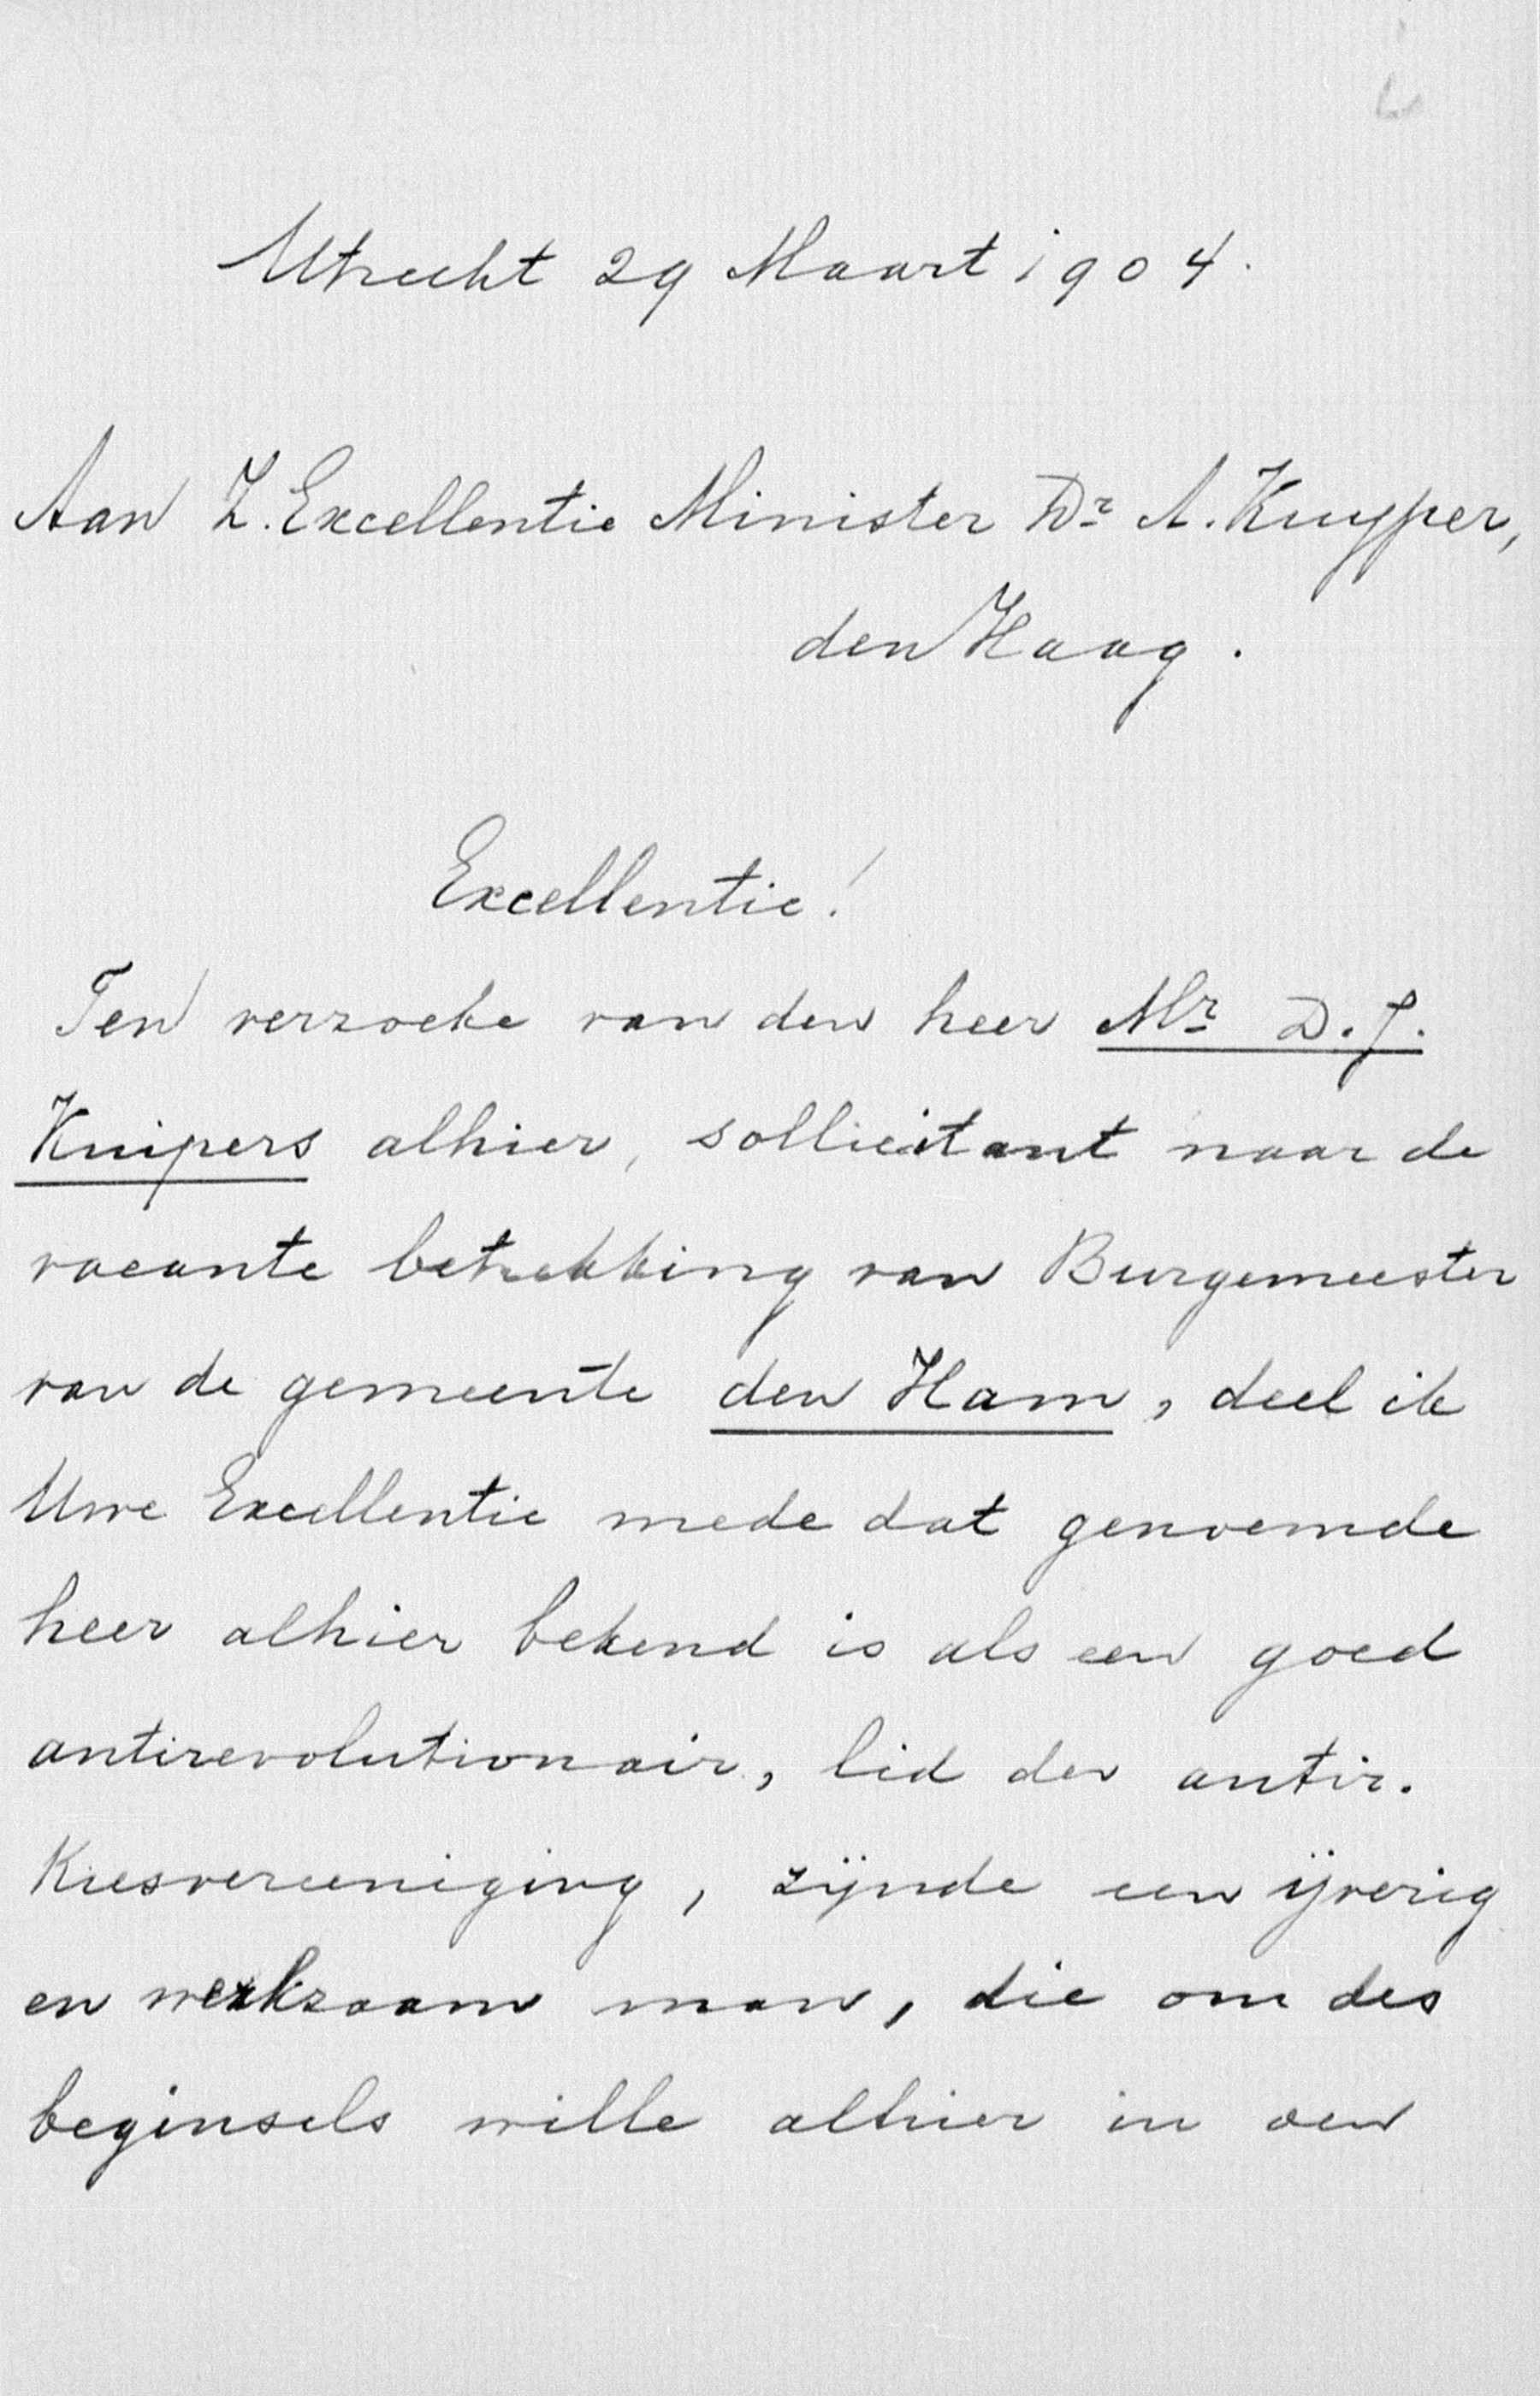 Utrecht 29 Maart 1904.
Aan Z. Excellentie Minister Dr A. Kuyper,
den Haag.
Excellentie!
Ten verzoeke van den heer Mr D. J.
Kuipers alhier, sollicitant naar de
vacante betrekking van Burgemeester
van de gemeente den Ham, deel ik
Uwe Excellentie mede dat genoemde
heer alhier bekend is als een goed
antirevolutionair, lid der antir.
Kiesvereeniging, zijnde een ijverig
en werkzaam man, die om des
beginsels wille alhier in den